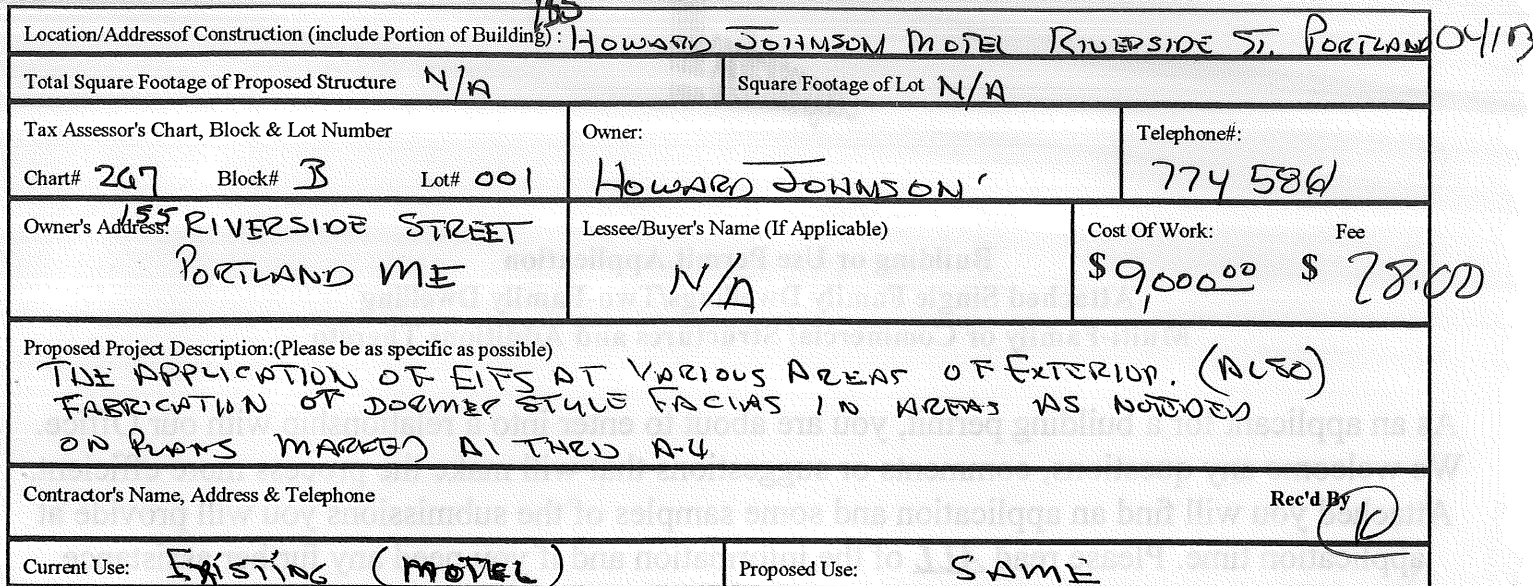 155
Location/Addressof Construction (include Portion of Building) : HOWARD JOHNSON MOTEL RIVERSIDE ST. PORTLAND 04103
Total Square Footage of Proposed Structure N/A Square Footage of Lot N/A
Tax Assessor's Chart, Block & Lot Number Owner: Telephone#:
Chart# 267 Block# B Lot# 001 HOWARD JOHNSON 774 5861
Owner's Address: 155 RIVERSIDE STREET Lessee/Buyer's Name (If Applicable) Cost Of Work: Fee
PORTLAND ME N/A $9,000.00 $ 78.00
Proposed Project Description:(Please be as specific as possible)
THE APPLICATION OF EIFS AT VARIOUS AREAS OF EXTERIOR. (ALSO)
FABRICATION OF DORMER STYLE FACIAS IN AREAS AS NOTED
ON PLANS MARKED A1 THRU A-4
Contractor's Name, Address & Telephone Rec'd By
Current Use: EXISTING (MOTEL) Proposed Use: SAME